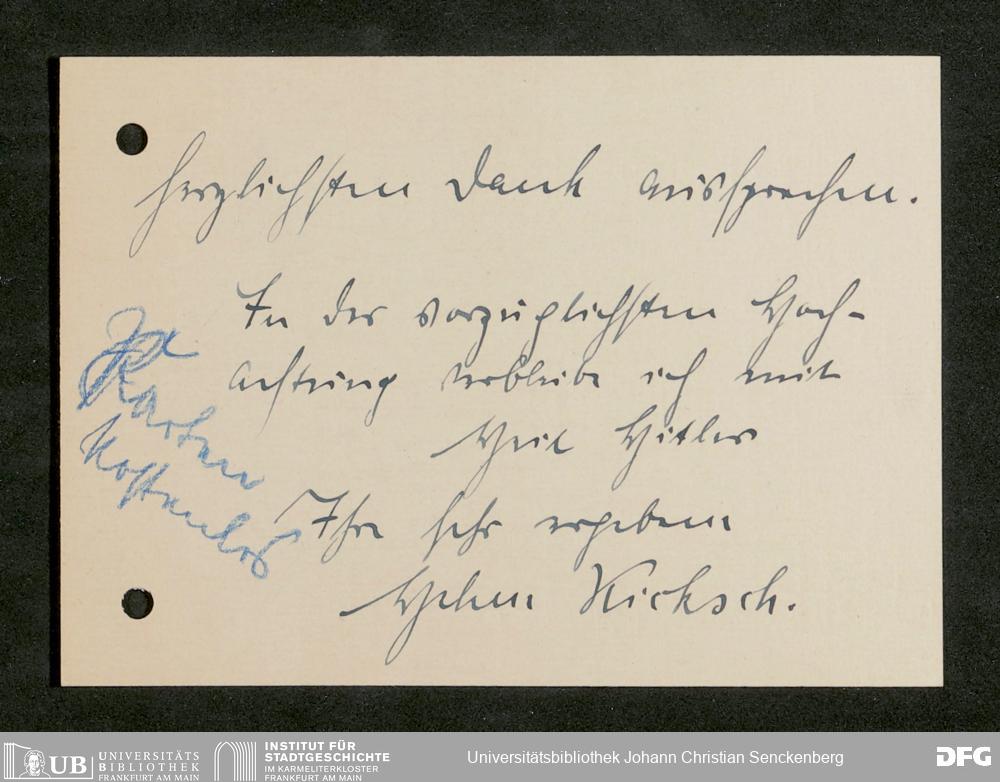 herzlichsten Dank aussprechen.
In der vorzüglichsten Hoch-
achtung verbleibe ich mit
Heil Hitler
Ihre sehr ergebene
Helene Kicksch.
Ja
Karten
kostenlos
UB UNIVERSITÄTS
BIBLIOTHEK
FRANKFURT AM MAIN
INSTITUT FÜR
STADTGESCHICHTE
IM KARMELITERKLOSTER
FRANKFURT AM MAIN
Universitätsbibliothek Johann Christian Senckenberg
DFG